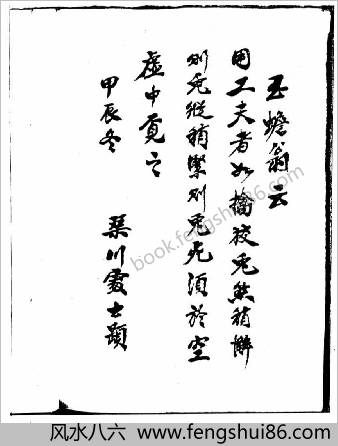 玉蟾翁云
用工夫者如擒狡兎然稍懈
則兎縱稍緊則兎死須於空
虛中覔之
甲辰冬
琹川霞士題
book.fengshui86.com
风水八六 www.fengshui86.com